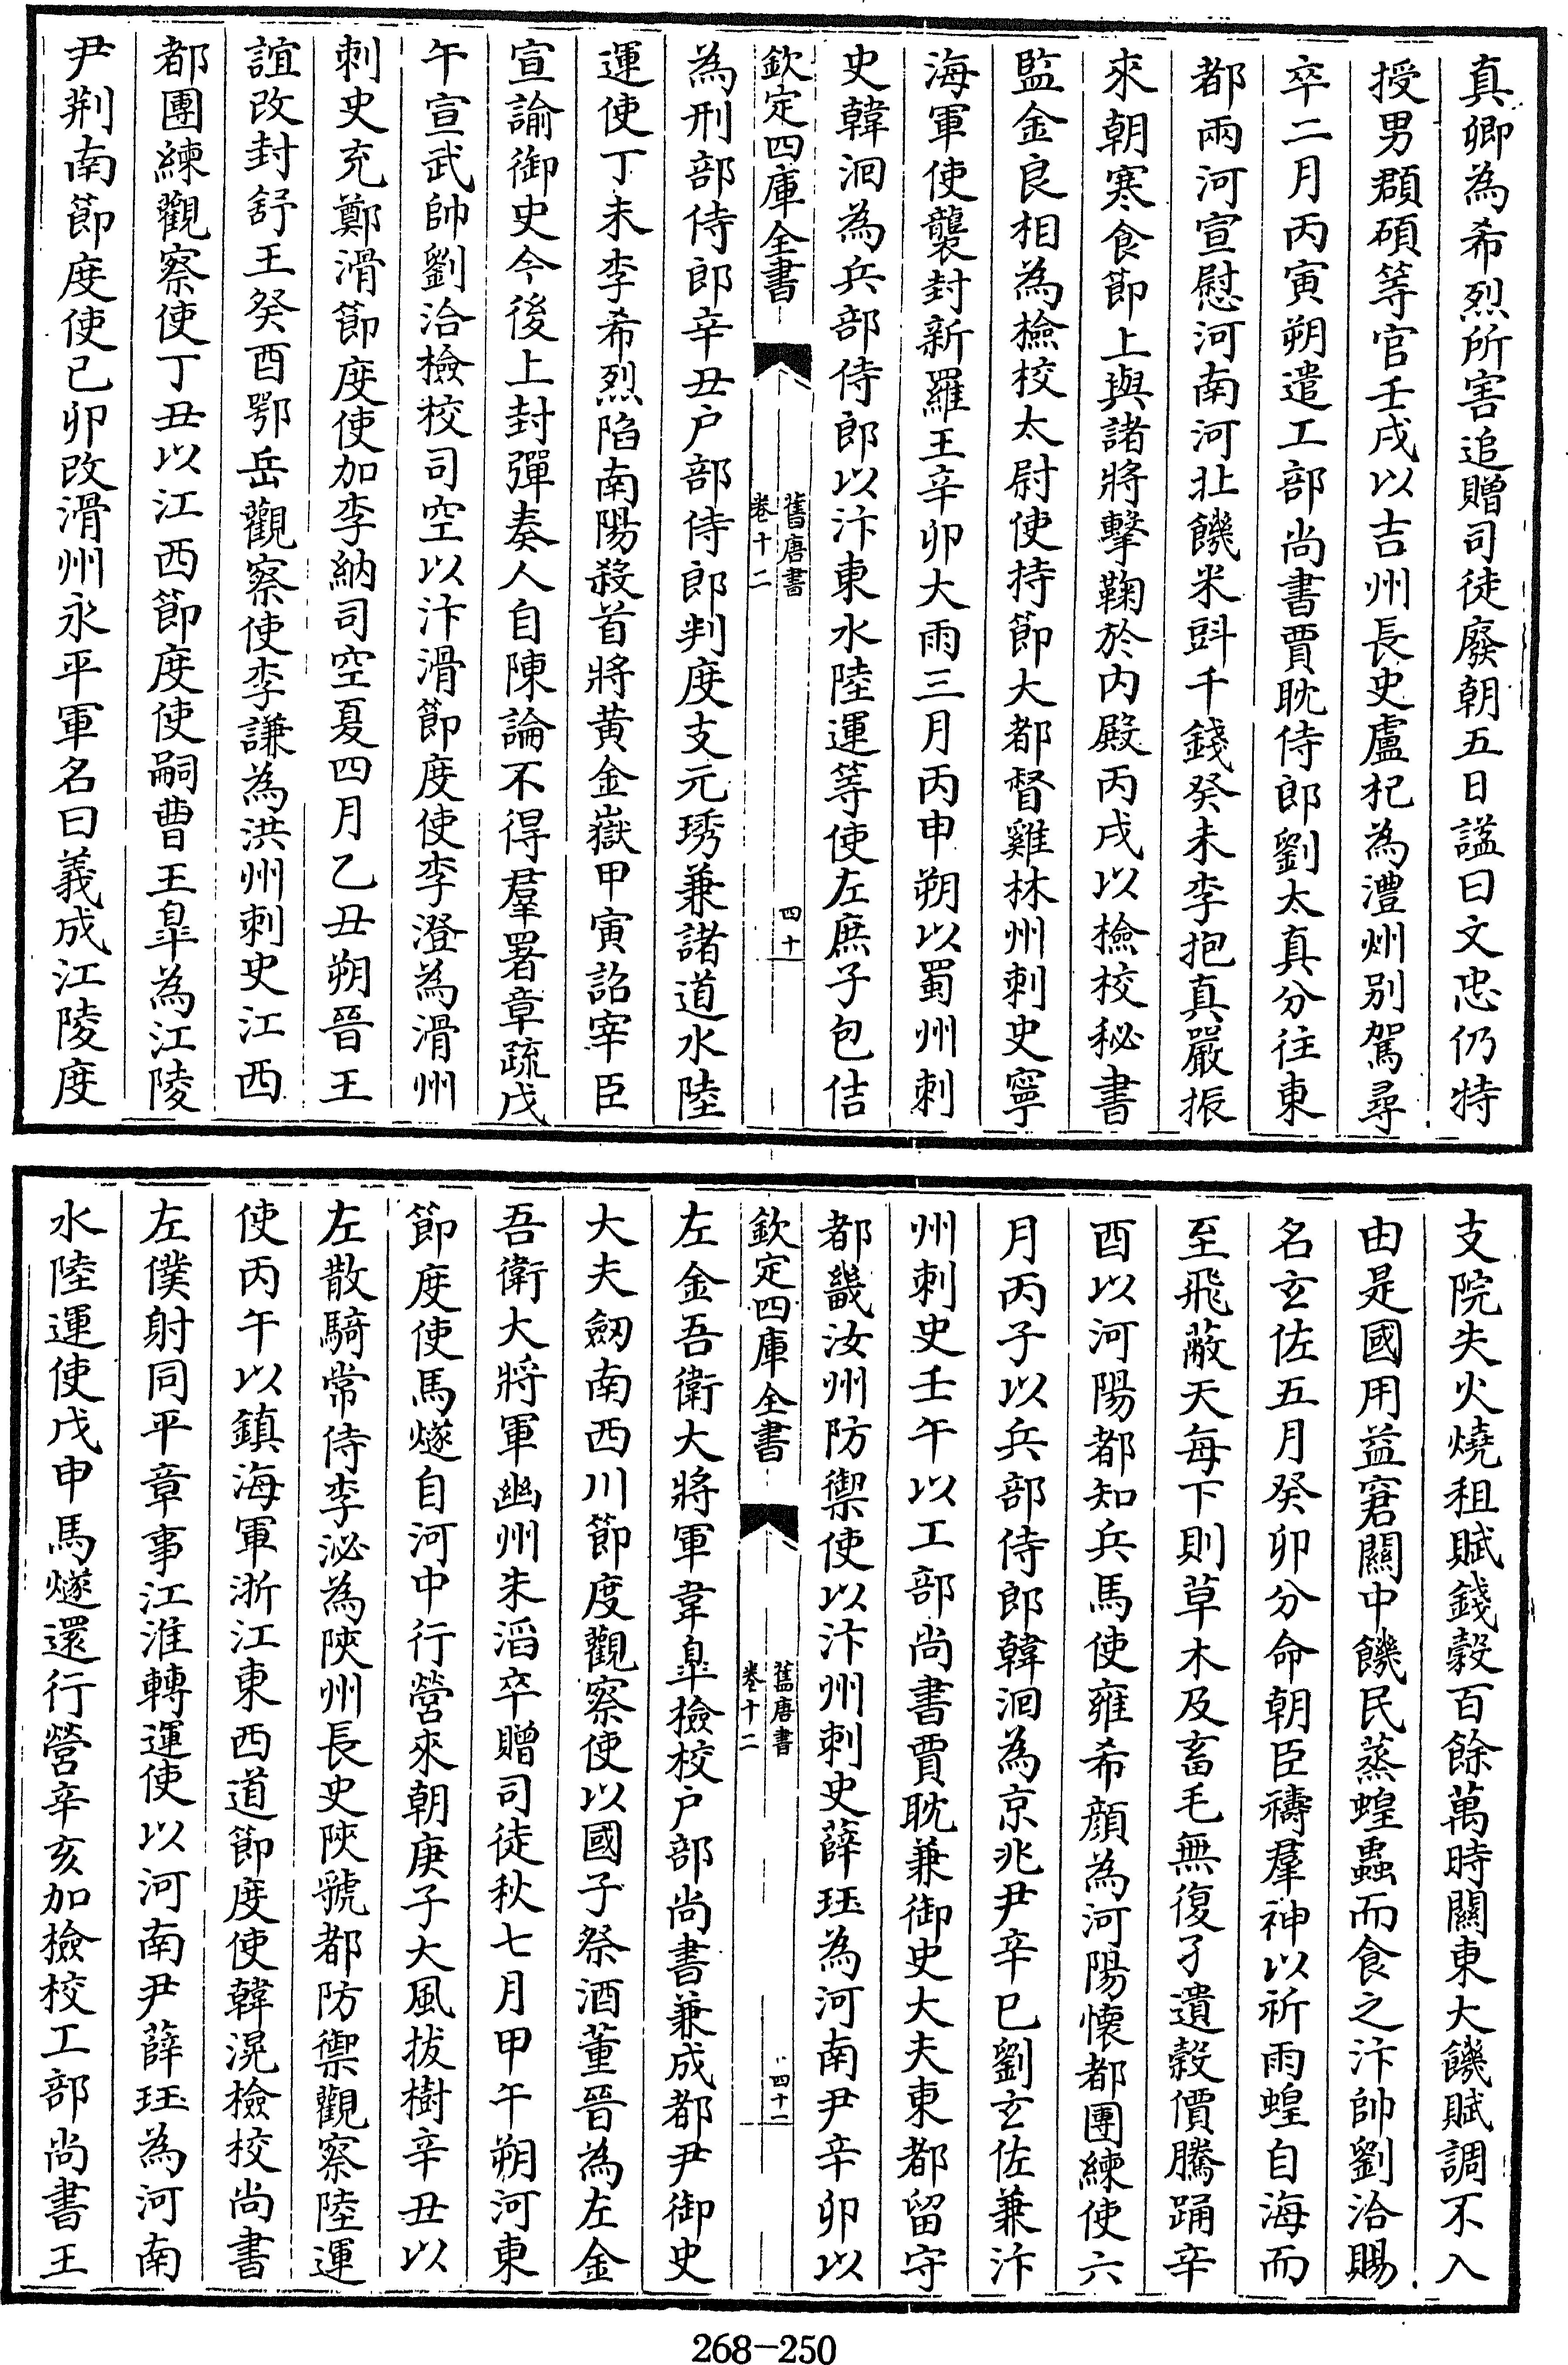 真卿為希烈所害追贈司徒廢朝五日諡曰文忠仍特
授男頵碩等官壬戌以吉州長史盧杞為澧州別駕尋
卒二月丙寅朔遣工部尚書賈耽侍郎劉太真分往東
都兩河宣慰河南河北饑米㪷千錢癸未李抱真嚴振
來朝寒食節上與諸將擊鞠於内殿丙戌以檢校秘書
監金良相為檢校太尉使持節大都督雞林州刺史寧
海軍使襲封新羅王辛卯大雨三月丙申朔以蜀州刺
史韓洄為兵部侍郎以汴東水陸運等使左庶子包佶
欽定四庫全書
舊唐書
卷十二
四十
為刑部侍郎辛丑户部侍郎判度支元琇兼諸道水陸
運使丁未李希烈陷南陽殺首將黄金嶽甲寅詔宰臣
宣諭御史今後上封彈奏人自陳論不得羣署章疏戊
午宣武帥劉洽檢校司空以汴滑節度使李澄為滑州
刺史充鄭滑節度使加李納司空夏四月乙丑朔晉王
誼改封舒王癸酉鄂岳觀察使李謙為洪州刺史江西
都團練觀察使丁丑以江西節度使嗣曹王臯為江陵
尹荆南節度使已卯改滑州永平軍名曰義成江陵度
支院失火燒租賦錢穀百餘萬時關東大饑賦調不入
由是國用益窘關中饑民蒸蝗蟲而食之汴帥劉洽賜
名玄佐五月癸卯分命朝臣禱羣神以祈雨蝗自海而
至飛蔽天每下則草木及畜毛無復孑遺穀價騰踊辛
酉以河陽都知兵馬使雍希顔為河陽懷都團練使六
月丙子以兵部侍郎韓洄為京兆尹辛巳劉玄佐兼汴
州刺史壬午以工部尚書賈耽兼御史大夫東都留守
都畿汝州防禦使以汴州刺史薛珏為河南尹辛卯以
欽定四庫全書
舊唐書
卷十二
四十一
左金吾衛大將軍韋臯檢校户部尚書兼成都尹御史
大夫劒南西川節度觀察使以國子祭酒董晉為左金
吾衛大將軍幽州朱滔卒贈司徒秋七月甲午朔河東
節度使馬燧自河中行營來朝庚子大風拔樹辛丑以
左散騎常侍李泌為陜州長史陜虢都防禦觀察陸運
使丙午以鎮海軍浙江東西道節度使韓滉檢校尚書
左僕射同平章事江淮轉運使以河南尹薛珏為河南
水陸運使戊申馬燧還行營辛亥加檢校工部尚書王
268-250